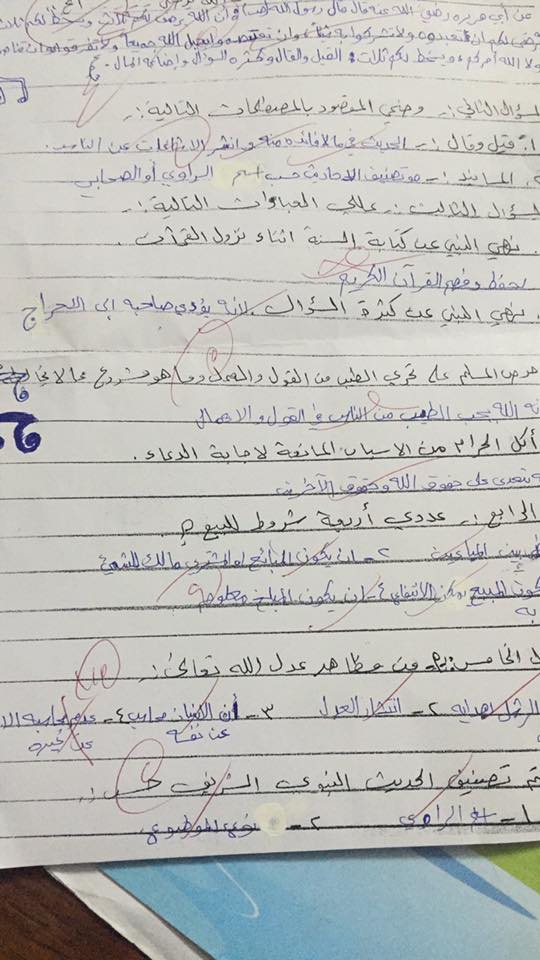 عن أبي هريرة رضي الله عنه قال قال رسول الله (ص) إن الله يرضى لكم ثلاث ويسخط لكم ثلاث
يرضى لكم ان تعبدوه ولا تشركوا به شيئا وان تعتصموا بحبل الله جميعا ولا تفرقوا وان تناصحوا
ولاه الله أمركم ويسخط لكم ثلاث: القيل والقال وكثرة السؤال وإضاعة المال.
السؤال الثاني:- وضحي المقصود بالمصطلحات التالية:-
١- قيل وقال:- الحديث في ما لا فائدة منه ونشر الاشاعات عن الناس.
٢. المسانيد:- هو تصنيف الاحاديث حسب اسم الراوي أو الصحابي
السؤال الثالث:- عللي العبارات التالية:-
. نهي النبي عن كتابة السنة اثناء نزول القرآن.
لحفظ وفهم القرآن الكريم
. نهي النبي عن كثرة السؤال. لانه يؤدي صاحبه الى الحراج
حرص المسلم على تحري الطيب من القول والعمل وما هو مشروع مما
نه الله يحب الطيب من الناس في القول والاعمال
أكل الحرام من الاسباب المانعة لاجابة الدعاء.
تعدى على حقوق الله وحقوق الآخرين
الرابع:- عددي أربعة شروط للبيع
٢- ان يكون البائع او المشتري مالك للشيء
يكون المبيع يمكن الانتفاع ٤- ان يكون المبلغ معلوم
به
الخامس: من مظاهر عدل الله تعالى:-
الرسل لهداية ٢- انتشار العدل ٣- أن الانسان محاسب ٤- عدم محاسبة الا
عن نفسه عن غيره
تم تصنيف الحديث النبوي الشريف حسب:-
١- اسم الراوي ٢- الموضوعي